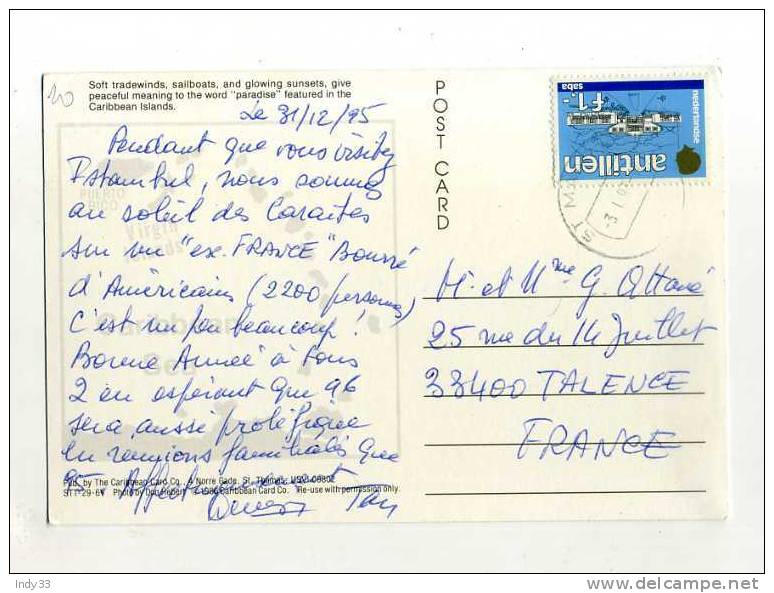 Soft tradewinds, sailboats, and glowing sunsets, give
peaceful meaning to the word "paradise" featured in the
Caribbean Islands.
Le 31/12/95
Pendant que vous visitez
Istambul, nous sommes
au soleil des Caraïbes
sur un "ex. FRANCE" Bourré
d'Américains (2200 personnes)
C'est un peu beaucoup !
Bonne Année à tous
2 en espérant que 96
sera aussi prolifique
en réunions familiales que
95
Pub. by The Caribbean Card Co., 4 Norre Gade, St. Thomas, USVI 00802
STT-29-6V Photo by Don Hebert © 1986 Caribbean Card Co. Re-use with permission only.
POST CARD
nederlandse
antillen
saba
f1,-
M. et Mme G.
25 rue du 14 Juillet
33400 TALENCE
FRANCE
Indy33
www.delcampe.net